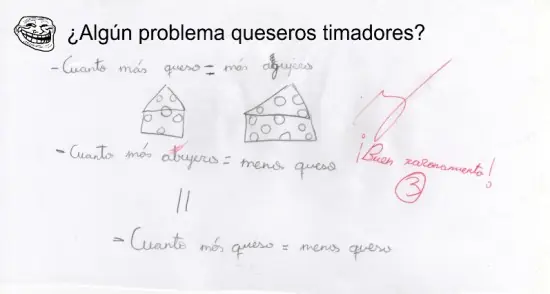 ¿Algún problema queseros timadores?
- Cuanto más queso = más agujeros
- Cuanto más atujeros = menos queso
¡Buen razonamiento!
3
=
- Cuanto más queso = menos queso